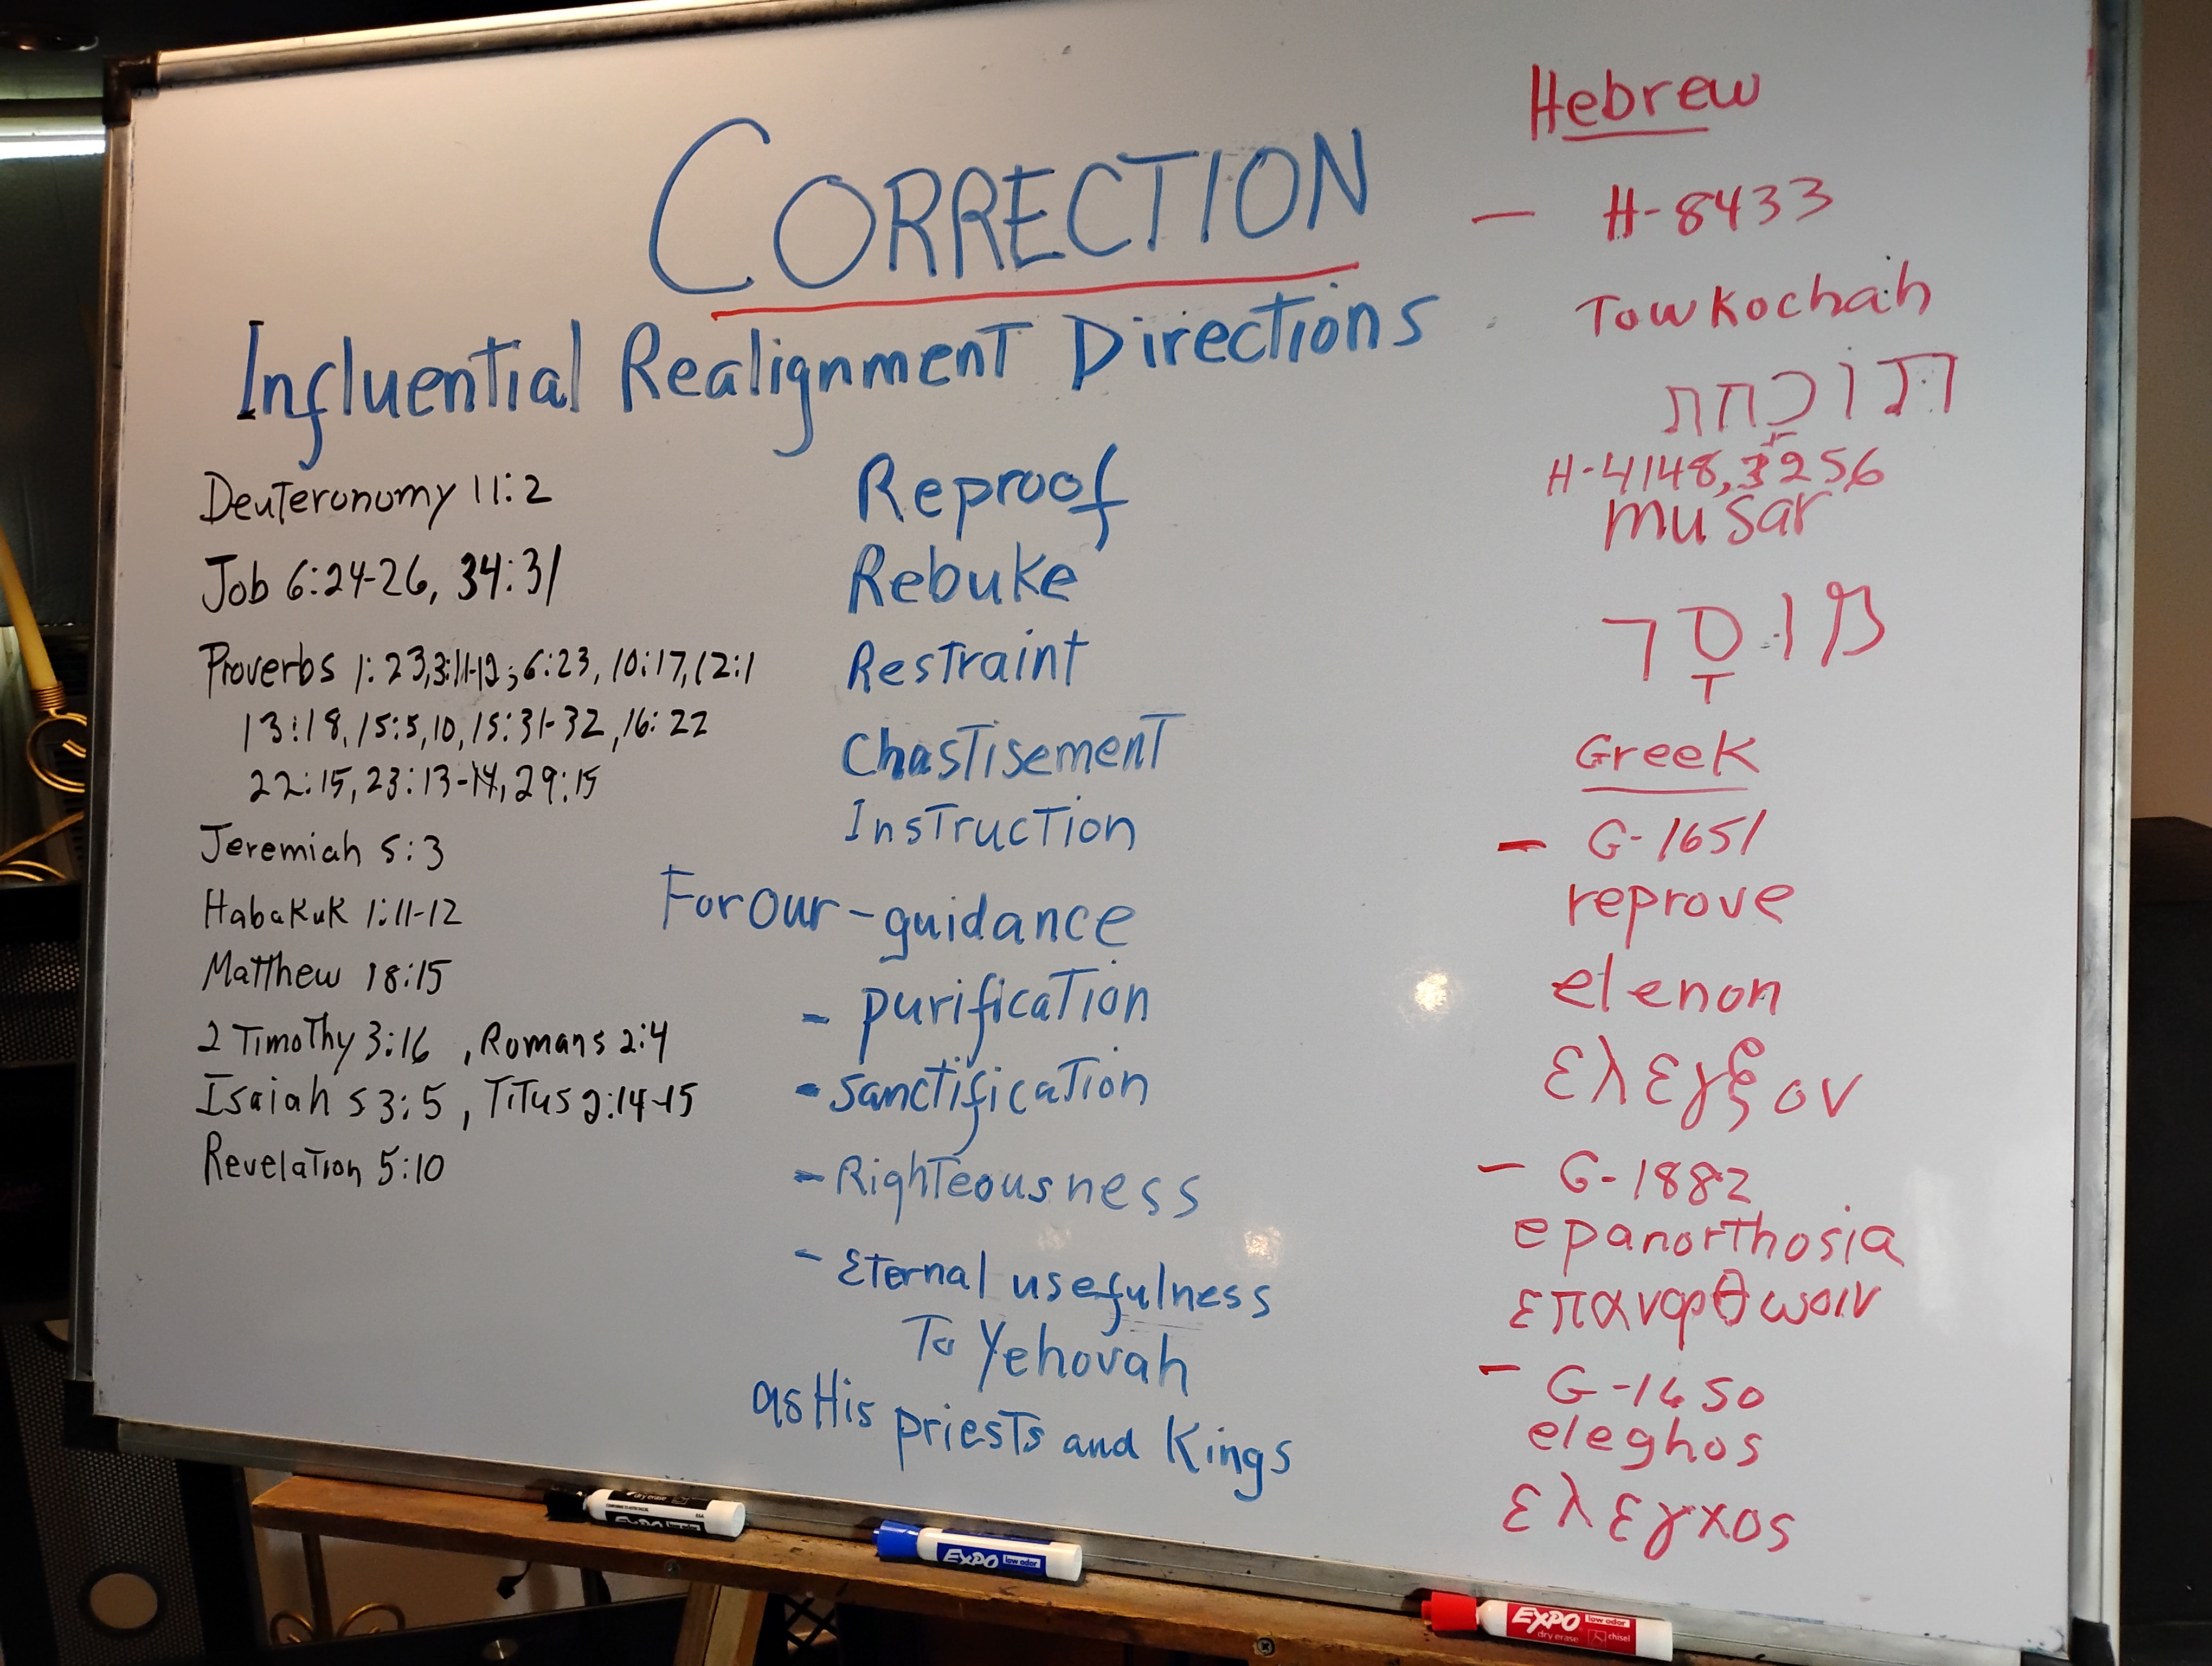 CORRECTION
Influential Realignment Directions
Deuteronomy 11:2
Job 6:24-26, 34:31
Proverbs 1:23,3:11-12;6:23, 10:17,12:1
13:18, 15:5,10, 15:31-32, 16:22
22:15, 23:13-14, 29:15
Jeremiah 5:3
Habakuk 1:11-12
Matthew 18:15
2 Timothy 3:16 , Romans 2:4
Isaiah 53:5 , Titus 2:14-15
Revelation 5:10
Reproof
Rebuke
Restraint
Chastisement
Instruction
For Our - guidance
- purification
- Sanctification
- Righteousness
- Eternal usefulness
To Yehovah
as His priests and Kings
Hebrew
- H-8433
Towkochah
תוכחת
H-4148, 3256
musar
מוסר
Greek
- G-1651
reprove
elenon
ελεγξον
- G-1882
epanorthosia
επανορθωσιν
- G-1650
eleghos
ελεγχος
EXPO
EXPO low odor
EXPO low odor
dry erase chisel